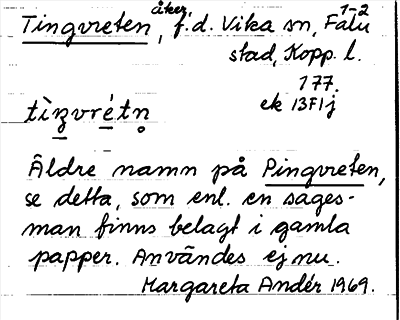 Tingvreten, åker, f.d. Vika sn, Falu 1-2
stad, Kopp. l.
177.
ek 13F1j
tìŋvrétn̥
Äldre namn på Pingvreten,
se detta, som enl. en sages-
man finns belagt i gamla
papper. Användes ej nu.
Margareta Andér 1969.